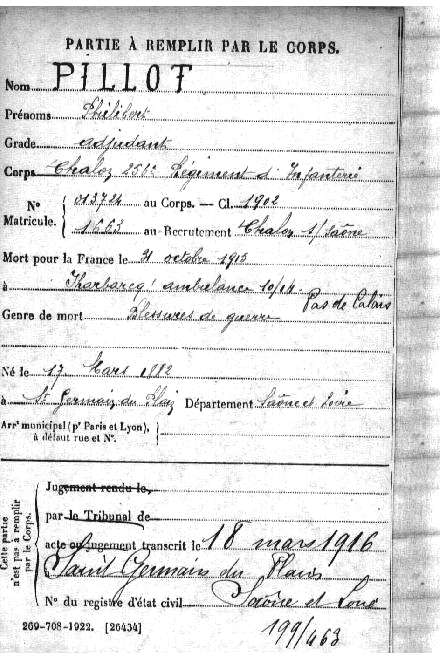 PARTIE À REMPLIR PAR LE CORPS.
Nom PILLOT
Prénoms Philibert
Grade adjudant
Corps Chalon 256e Régiment d'Infanterie
N° Matricule. 013724 au Corps. — Cl. 1902
1663 au Recrutement Chalon s/Saône
Mort pour la France le 21 octobre 1915
à Habarcq ambulance 10/14. Pas de Calais
Genre de mort Blessures de guerre
Né le 17 Mars 1882
à St Germain du Plain Département Saône et Loire
Arrt municipal (pr Paris et Lyon), à défaut rue et N°.
Cette partie n'est pas à remplir par le Corps.
Jugement rendu le
par le Tribunal de
acte ou jugement transcrit le 18 mars 1916
Saint Germain du Plain
N° du registre d'état civil Saône et Loire
269-708-1922. [26434]
199/463